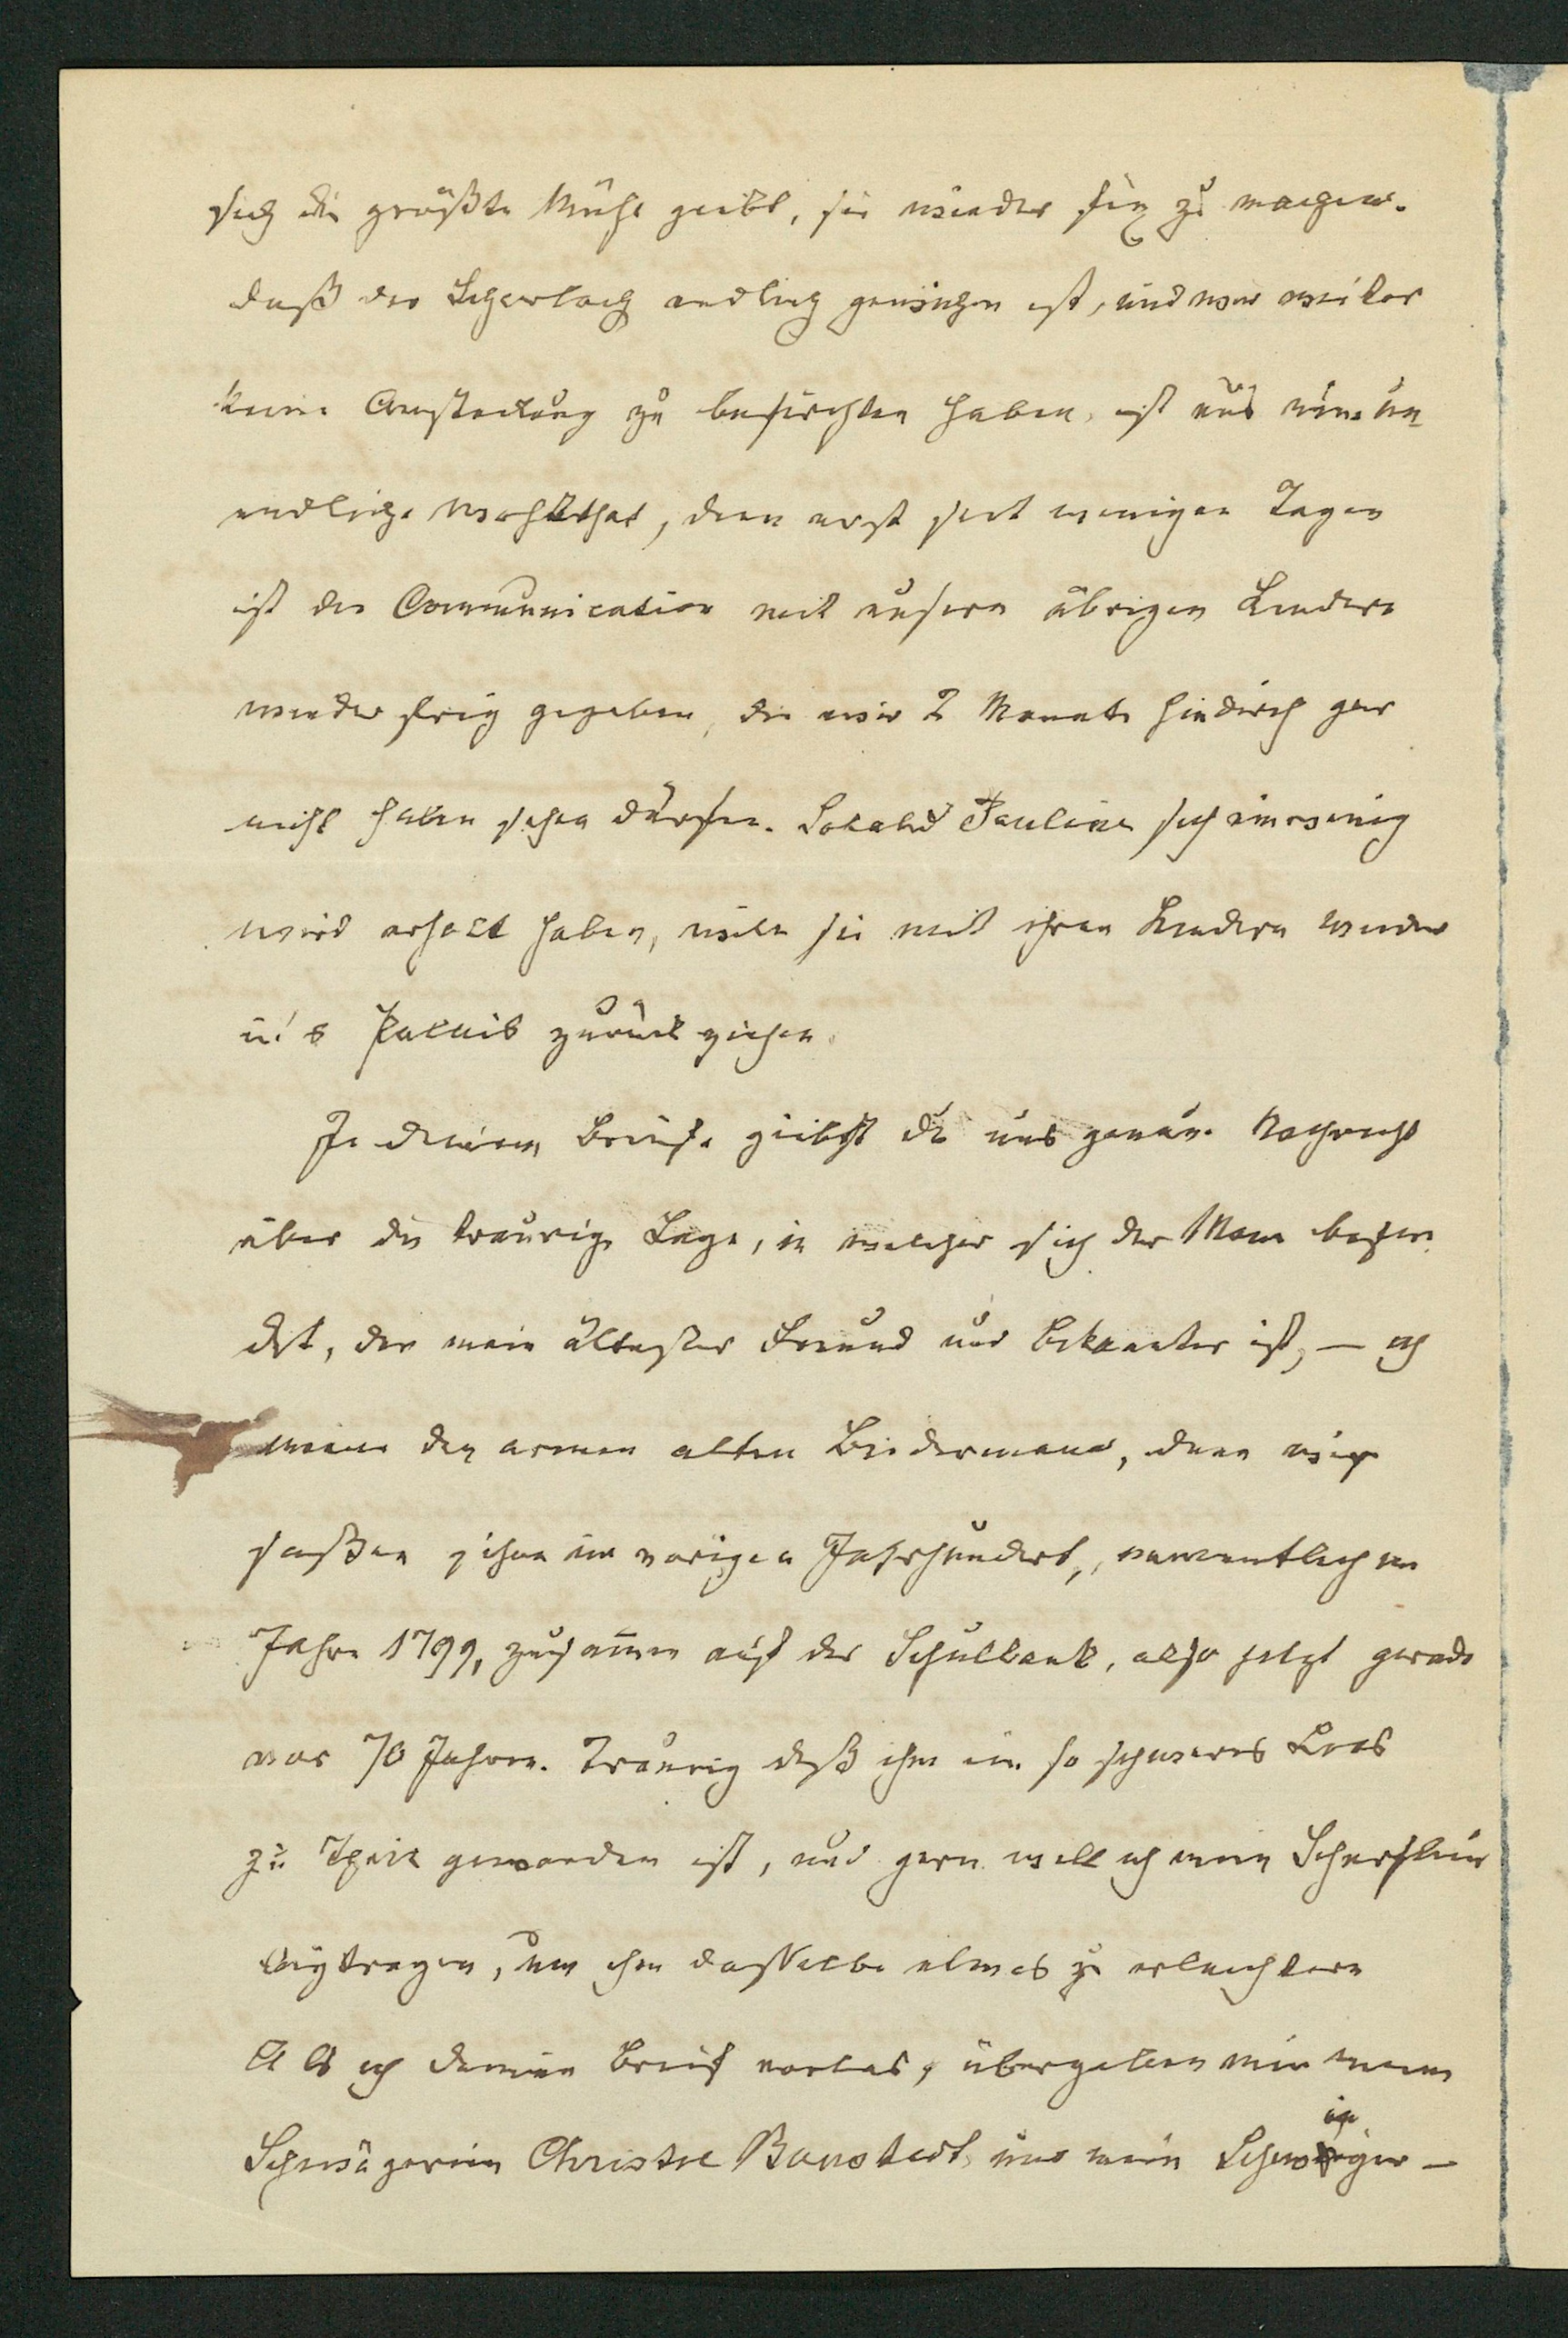 sich die größte Mühe giebt, sie wieder fix zu machen.
daß der Scharlach endlich gewichen ist, und wir weiter
keine Ansteckung zu befürchten haben, ist uns eine un-
endliche Wohlthat, denn erst seit wenigen Tagen
ist die Communication mit unsern übrigen Kindern
wieder frei gegeben, die wir 2 Monate hindurch gar
nicht haben sehen dürfen. Sobald Pauline sich ein wenig
wird erholt haben, will sie mit ihren Kindern wieder
in's Palais zurückziehen.
In deinem Briefe giebst du uns genaue Nachricht
über die traurige Lage, in welcher sich der Mann befin
det, der mein ältester Freund und Bekannter ist, — ich
meine den armen alten Biedermann, denn wir
saßen schon im vorigen Jahrhundert, namentlich im
Jahre 1799, zusammen auf der Schulbank, also jetzt gerade
vor 70 Jahren. Traurig daß ihm ein so schweres Loos
zu Theil geworden ist, und gern will ich mein Scherflein
beytragen, um ihm dasselbe etwas zu erleichtern
Als ich deinen Brief vorlas, übergaben mir meine
Schwägerin Christne Bonstedt und mein Schwieger –